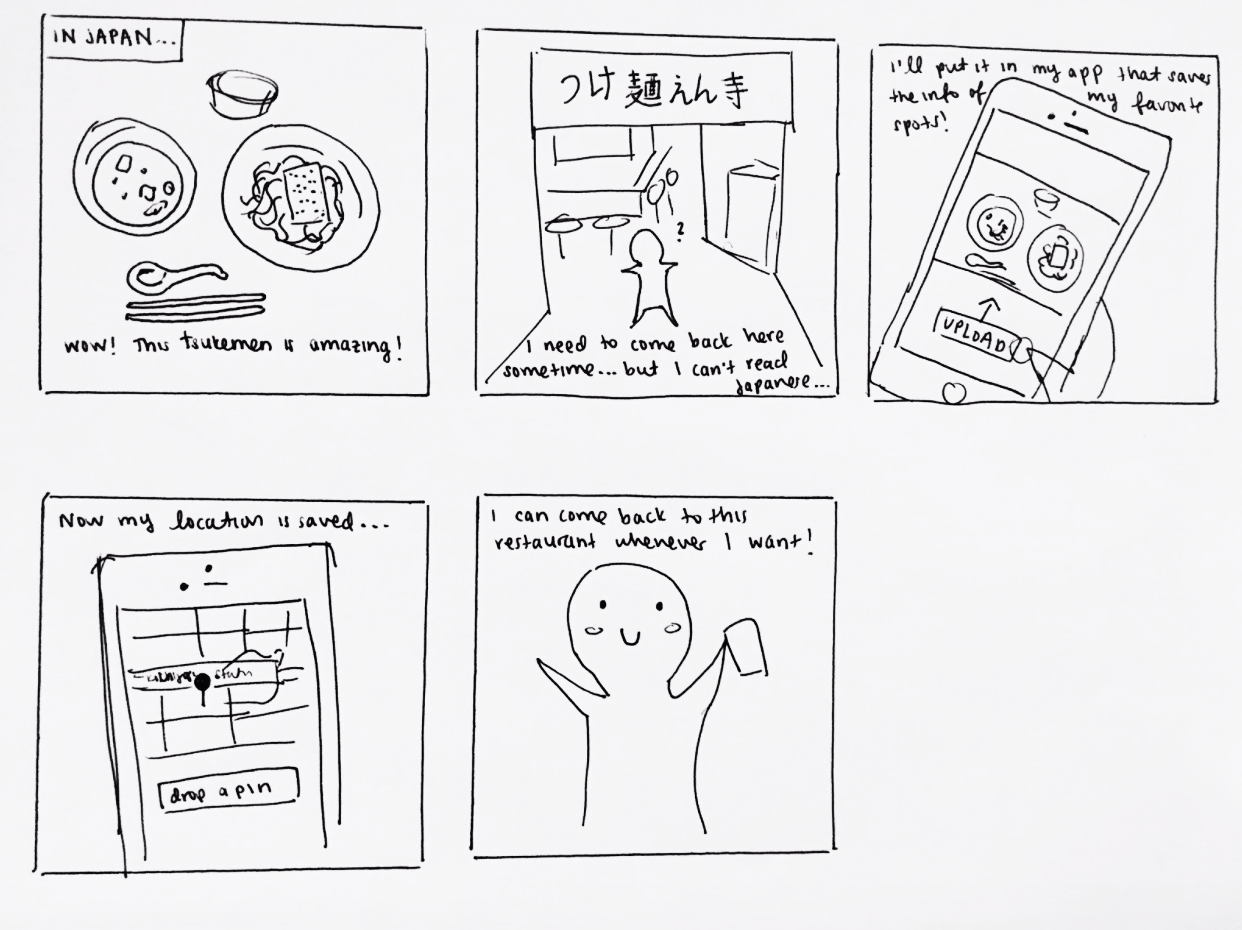 IN JAPAN...
wow! This tsukemen is amazing!
つけ麺えん寺
?
I need to come back here
sometime... but I can't read
Japanese...
I'll put it in my app that saves
the info of my favorite
spots!
UPLOAD
Now my location is saved...
drop a pin
I can come back to this
restaurant whenever I want!